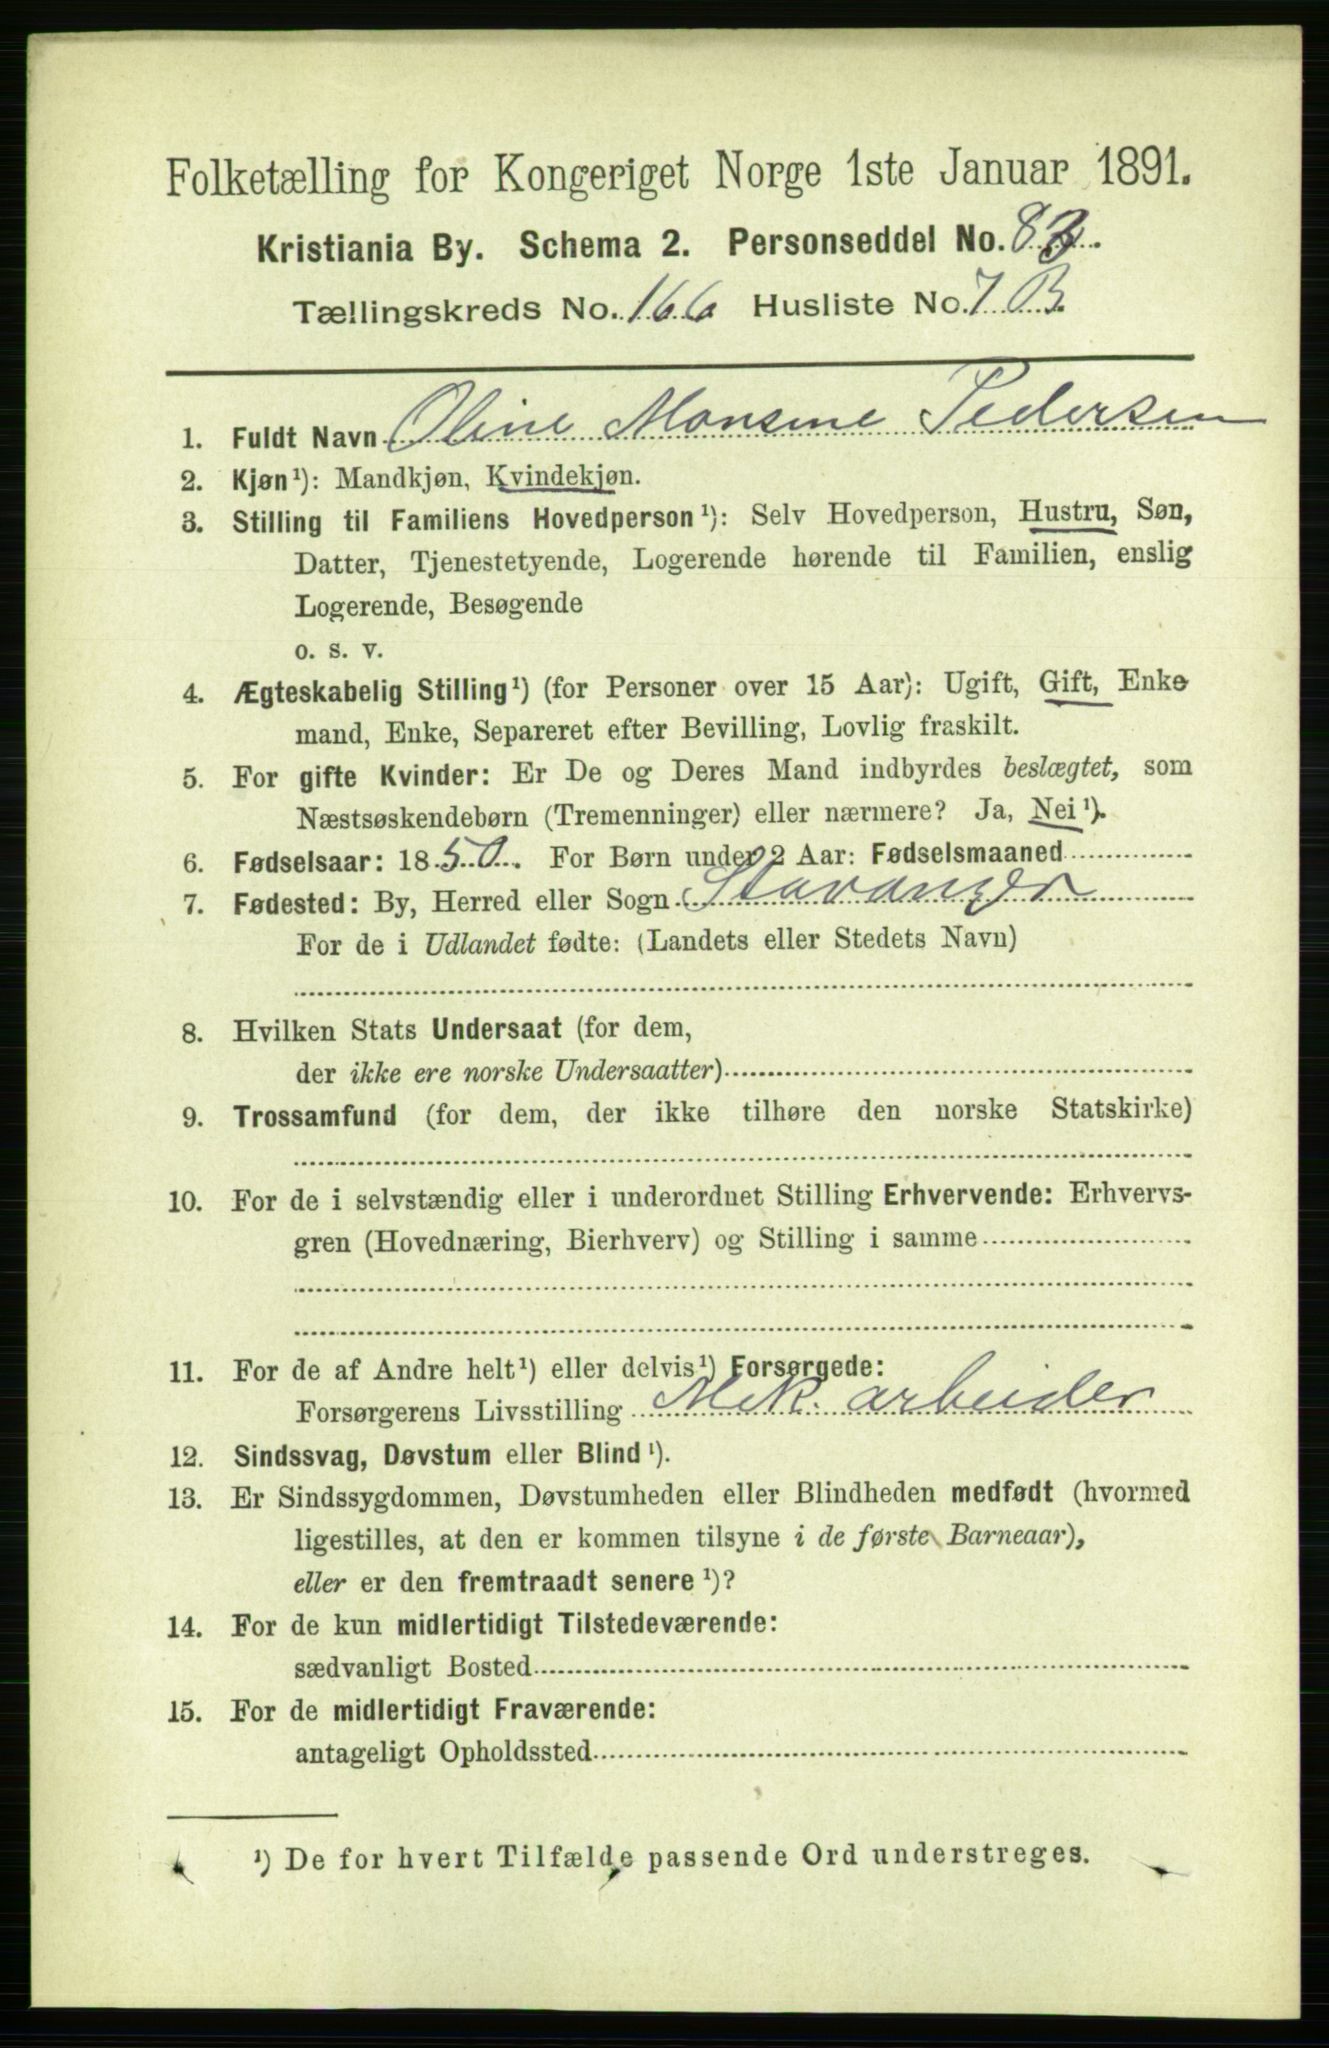 Folketælling for Kongeriget Norge 1ste Januar 1891.
Kristiania By. Schema 2. Personseddel No. 83.
Tællingskreds No. 166 Husliste No. 7 B.
1. Fuldt Navn Oline Monsine Pedersen
2. Kjøn¹): Mandkjøn, Kvindekjøn.
3. Stilling til Familiens Hovedperson¹): Selv Hovedperson, Hustru, Søn,
Datter, Tjenestetyende, Logerende hørende til Familien, enslig
Logerende, Besøgende
o. s. v.
4. Ægteskabelig Stilling¹) (for Personer over 15 Aar): Ugift, Gift, Enke-
mand, Enke, Separeret efter Bevilling, Lovlig fraskilt.
5. For gifte Kvinder: Er De og Deres Mand indbyrdes beslægtet, som
Næstsøskendebørn (Tremenninger) eller nærmere? Ja, Nei¹).
6. Fødselsaar: 1850. For Børn under 2 Aar: Fødselsmaaned
7. Fødested: By, Herred eller Sogn Stavanger
For de i Udlandet fødte: (Landets eller Stedets Navn)
8. Hvilken Stats Undersaat (for dem,
der ikke ere norske Undersaatter)
9. Trossamfund (for dem, der ikke tilhøre den norske Statskirke)
10. For de i selvstændig eller i underordnet Stilling Erhvervende: Erhvervs-
gren (Hovednæring, Bierhverv) og Stilling i samme
11. For de af Andre helt¹) eller delvis¹) Forsørgede:
Forsørgerens Livsstilling Mek. arbeider
12. Sindssvag, Døvstum eller Blind¹).
13. Er Sindssygdommen, Døvstumheden eller Blindheden medfødt (hvormed
ligestilles, at den er kommen tilsyne i de første Barneaar),
eller er den fremtraadt senere¹)?
14. For de kun midlertidigt Tilstedeværende:
sædvanligt Bosted
15. For de midlertidigt Fraværende:
antageligt Opholdssted
¹) De for hvert Tilfælde passende Ord understreges.